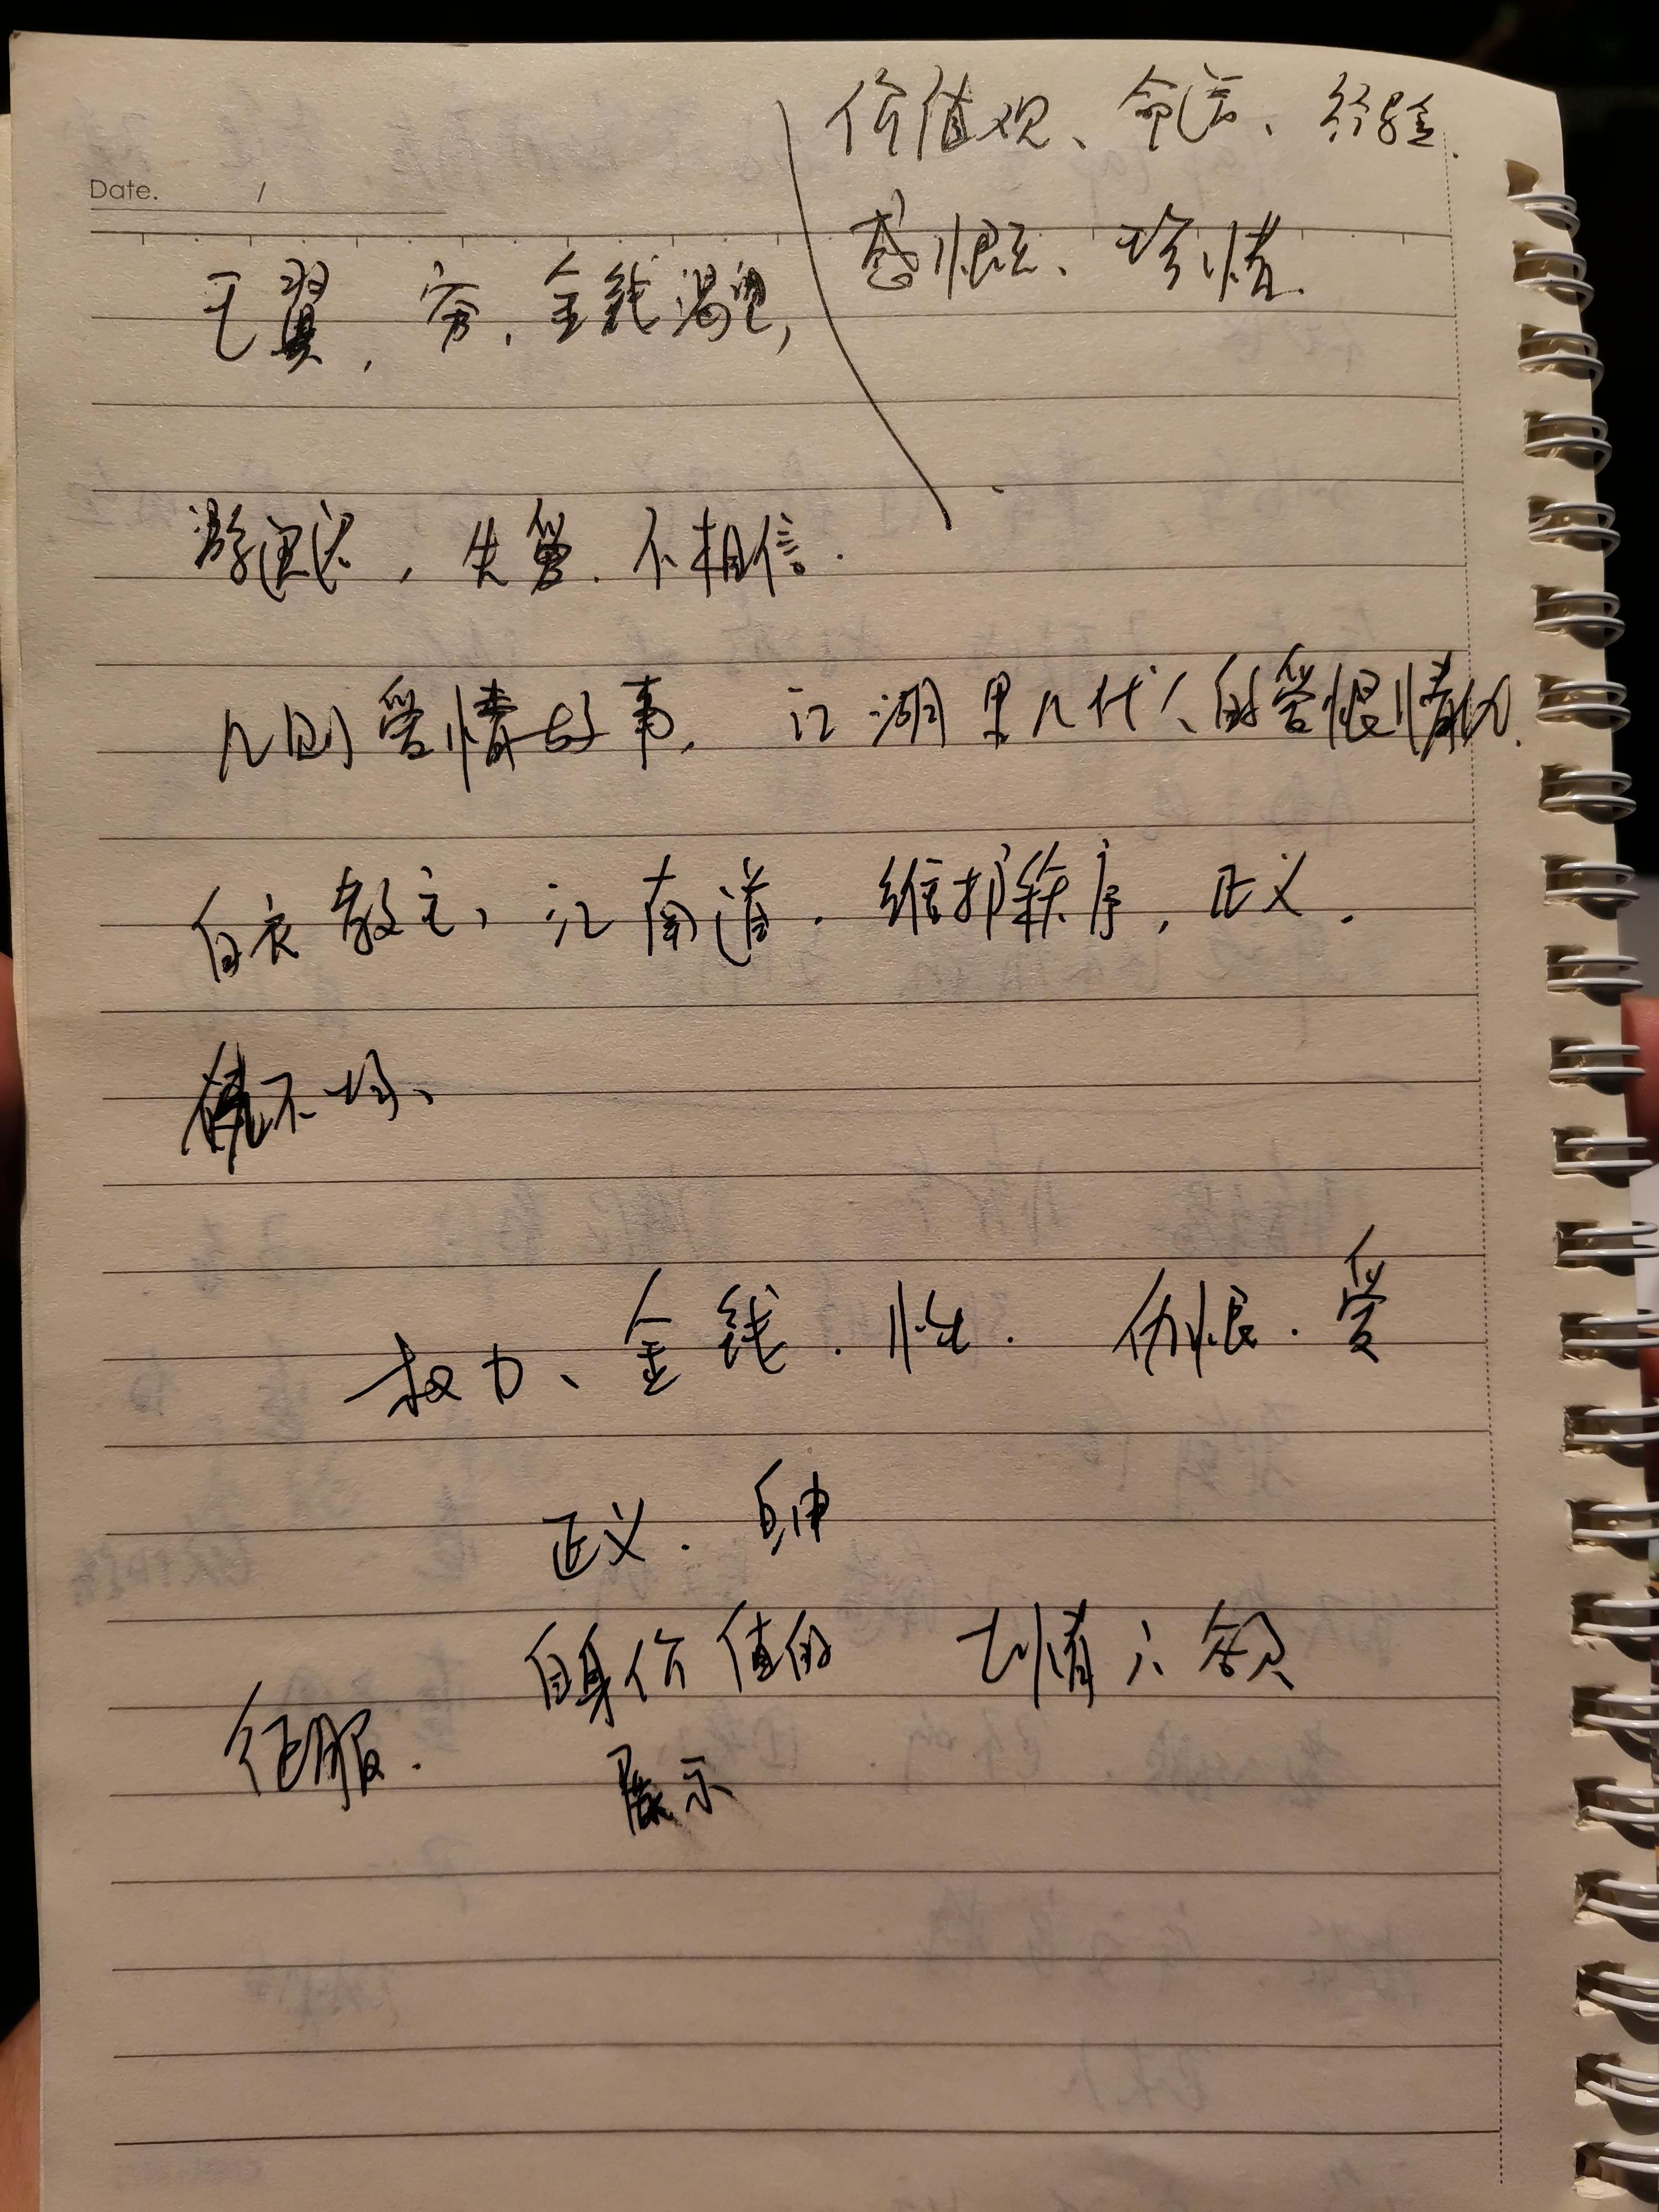 价值观、命运、经验.
感恨、珍惜.
Date. /
毛翼, 穷, 金钱渴望,
失望. 不相信.
几则爱情故事, 江湖里几代人的爱恨情仇.
白衣教主, 江南道. 维护秩序, 正义.
不均、
权力、金钱. 性. 仇恨. 爱
正义. 自由
自身价值的 七情六欲
征服. 展示